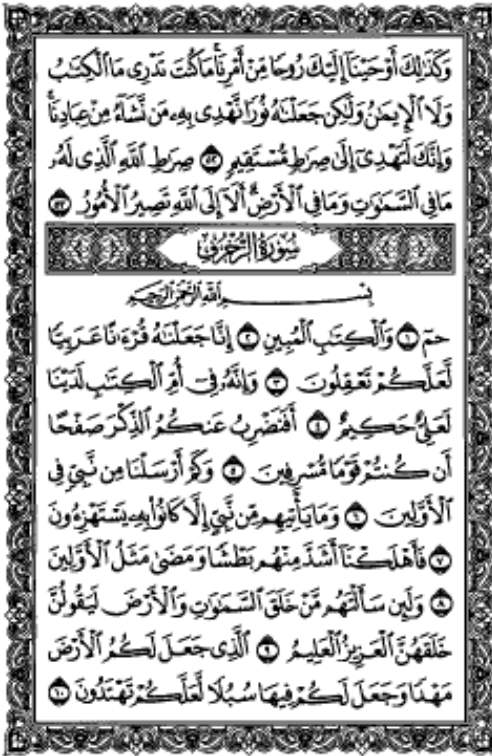 وَكَذَٰلِكَ أَوْحَيْنَآ إِلَيْكَ رُوحًا مِّنْ أَمْرِنَاۚ مَا كُنتَ تَدْرِى مَا ٱلْكِتَٰبُ
وَلَا ٱلْإِيمَٰنُ وَلَٰكِن جَعَلْنَٰهُ نُورًا نَّهْدِى بِهِۦ مَن نَّشَآءُ مِنْ عِبَادِنَاۚ
وَإِنَّكَ لَتَهْدِىٓ إِلَىٰ صِرَٰطٍ مُّسْتَقِيمٍ ٥٢ صِرَٰطِ ٱللَّهِ ٱلَّذِى لَهُۥ
مَا فِى ٱلسَّمَٰوَٰتِ وَمَا فِى ٱلْأَرْضِۗ أَلَآ إِلَى ٱللَّهِ تَصِيرُ ٱلْأُمُورُ ٥٣
سُورَةُ الزُّخْرُفِ
بِسْمِ ٱللَّهِ ٱلرَّحْمَٰنِ ٱلرَّحِيمِ
حمٓ ١ وَٱلْكِتَٰبِ ٱلْمُبِينِ ٢ إِنَّا جَعَلْنَٰهُ قُرْءَٰنًا عَرَبِيًّا
لَّعَلَّكُمْ تَعْقِلُونَ ٣ وَإِنَّهُۥ فِىٓ أُمِّ ٱلْكِتَٰبِ لَدَيْنَا
لَعَلِىٌّ حَكِيمٌ ٤ أَفَنَضْرِبُ عَنكُمُ ٱلذِّكْرَ صَفْحًا
أَن كُنتُمْ قَوْمًا مُّسْرِفِينَ ٥ وَكَمْ أَرْسَلْنَا مِن نَّبِىٍّ فِى
ٱلْأَوَّلِينَ ٦ وَمَا يَأْتِيهِم مِّن نَّبِىٍّ إِلَّا كَانُوا۟ بِهِۦ يَسْتَهْزِءُونَ
٧ فَأَهْلَكْنَآ أَشَدَّ مِنْهُم بَطْشًا وَمَضَىٰ مَثَلُ ٱلْأَوَّلِينَ
٨ وَلَئِن سَأَلْتَهُم مَّنْ خَلَقَ ٱلسَّمَٰوَٰتِ وَٱلْأَرْضَ لَيَقُولُنَّ
خَلَقَهُنَّ ٱلْعَزِيزُ ٱلْعَلِيمُ ٩ ٱلَّذِى جَعَلَ لَكُمُ ٱلْأَرْضَ
مَهْدًا وَجَعَلَ لَكُمْ فِيهَا سُبُلًا لَّعَلَّكُمْ تَهْتَدُونَ ١٠